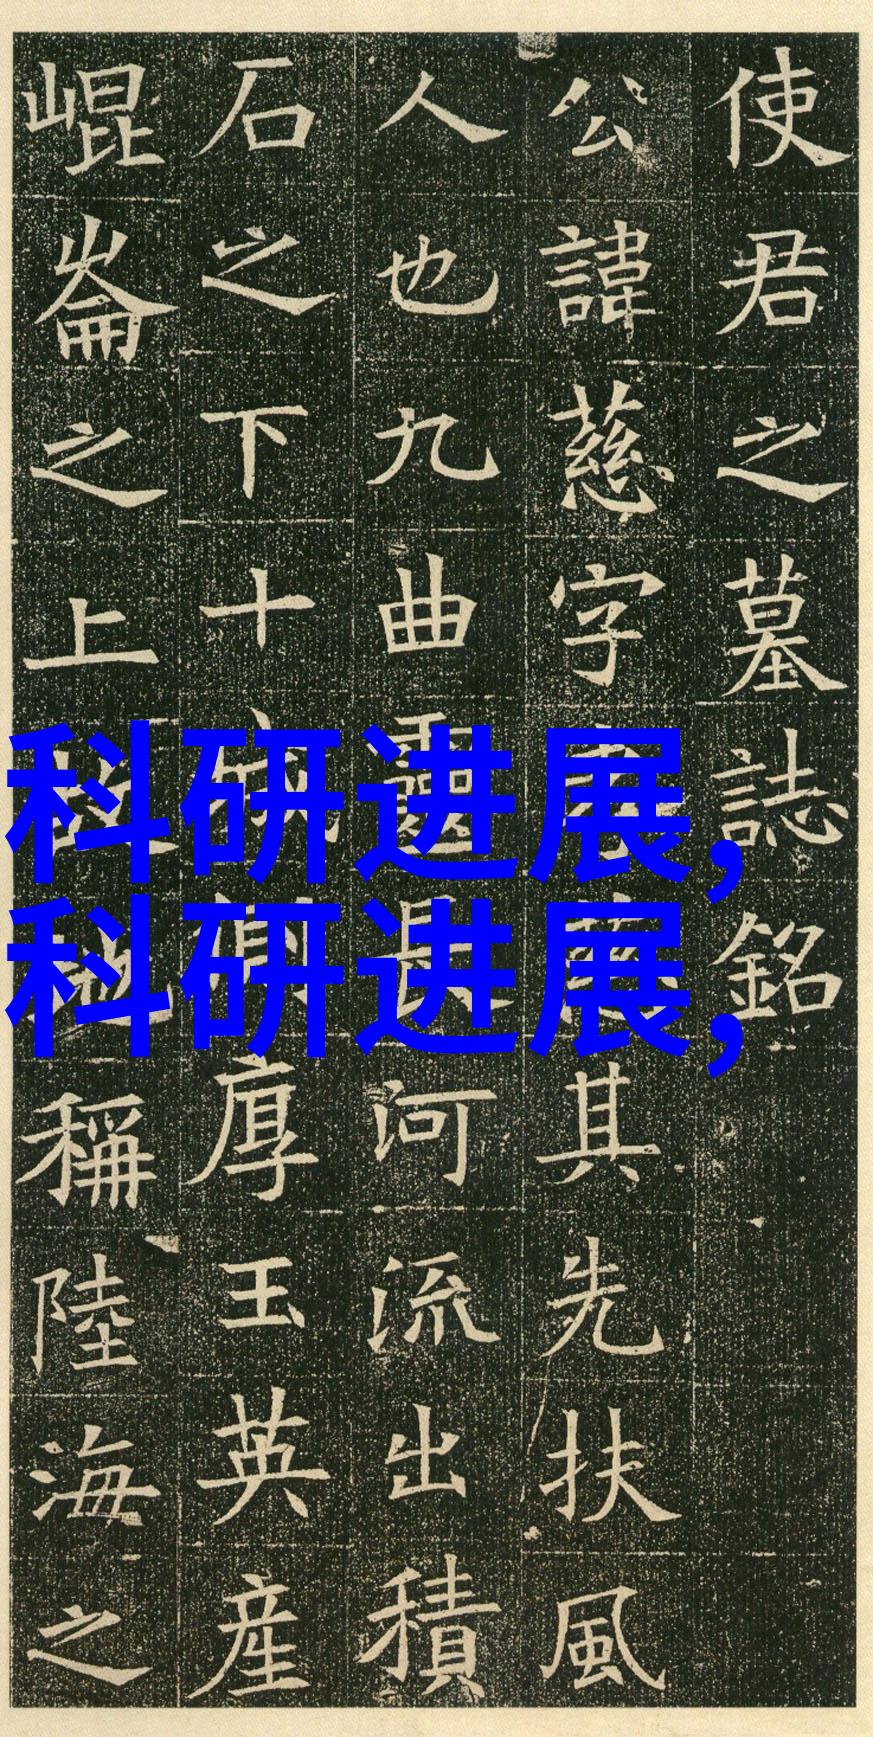 使君之墓誌銘
公諱慈字其先扶風
人也九曲靈長河流出積
石之下十城側厚玉英産
崐崙之上故稱陸海之
科研进展,
科研进展,